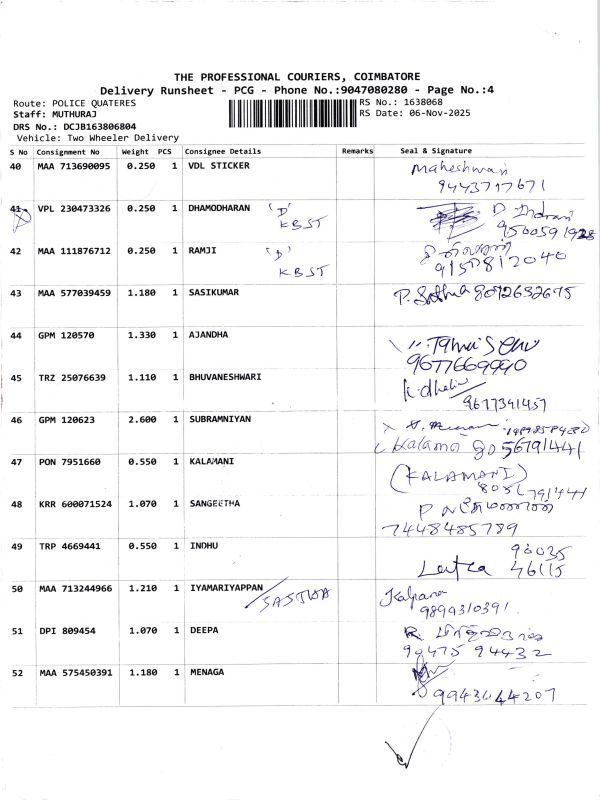 THE PROFESSIONAL COURIERS, COIMBATORE
Delivery Runsheet - PCG - Phone No.:9047080280 - Page No.:4
Route: POLICE QUATERES RS No.: 1638068
Staff: MUTHURAJ RS Date: 06-Nov-2025
DRS No.: DCJB163806804
Vehicle: Two Wheeler Delivery
S No Consignment No Weight PCS Consignee Details Remarks Seal & Signature
40 MAA 713690095 0.250 1 VDL STICKER Maheshwari
9443717671
41 VPL 230473326 0.250 1 DHAMODHARAN 'D' D Indrani
KBST 9500591928
42 MAA 111876712 0.250 1 RAMJI 'D'
KBST 9150812040
43 MAA 577039459 1.180 1 SASIKUMAR 8072632675
44 GPM 120570 1.330 1 AJANDHA
9677669990
45 TRZ 25076639 1.110 1 BHUVANESHWARI
9677391457
46 GPM 120623 2.600 1 SUBRAMNIYAN
Kalamani 8056791441
47 PON 7951660 0.550 1 KALAMANI (KALAMANI)
8056791441
48 KRR 600071524 1.070 1 SANGEETHA
7448485789
49 TRP 4669441 0.550 1 INDHU 96035
Latha 46115
50 MAA 713244966 1.210 1 IYAMARIYAPPAN Kalpana
9899310391
51 DPI 809454 1.070 1 DEEPA R.
90475 94432
52 MAA 575450391 1.180 1 MENAGA
9943044207